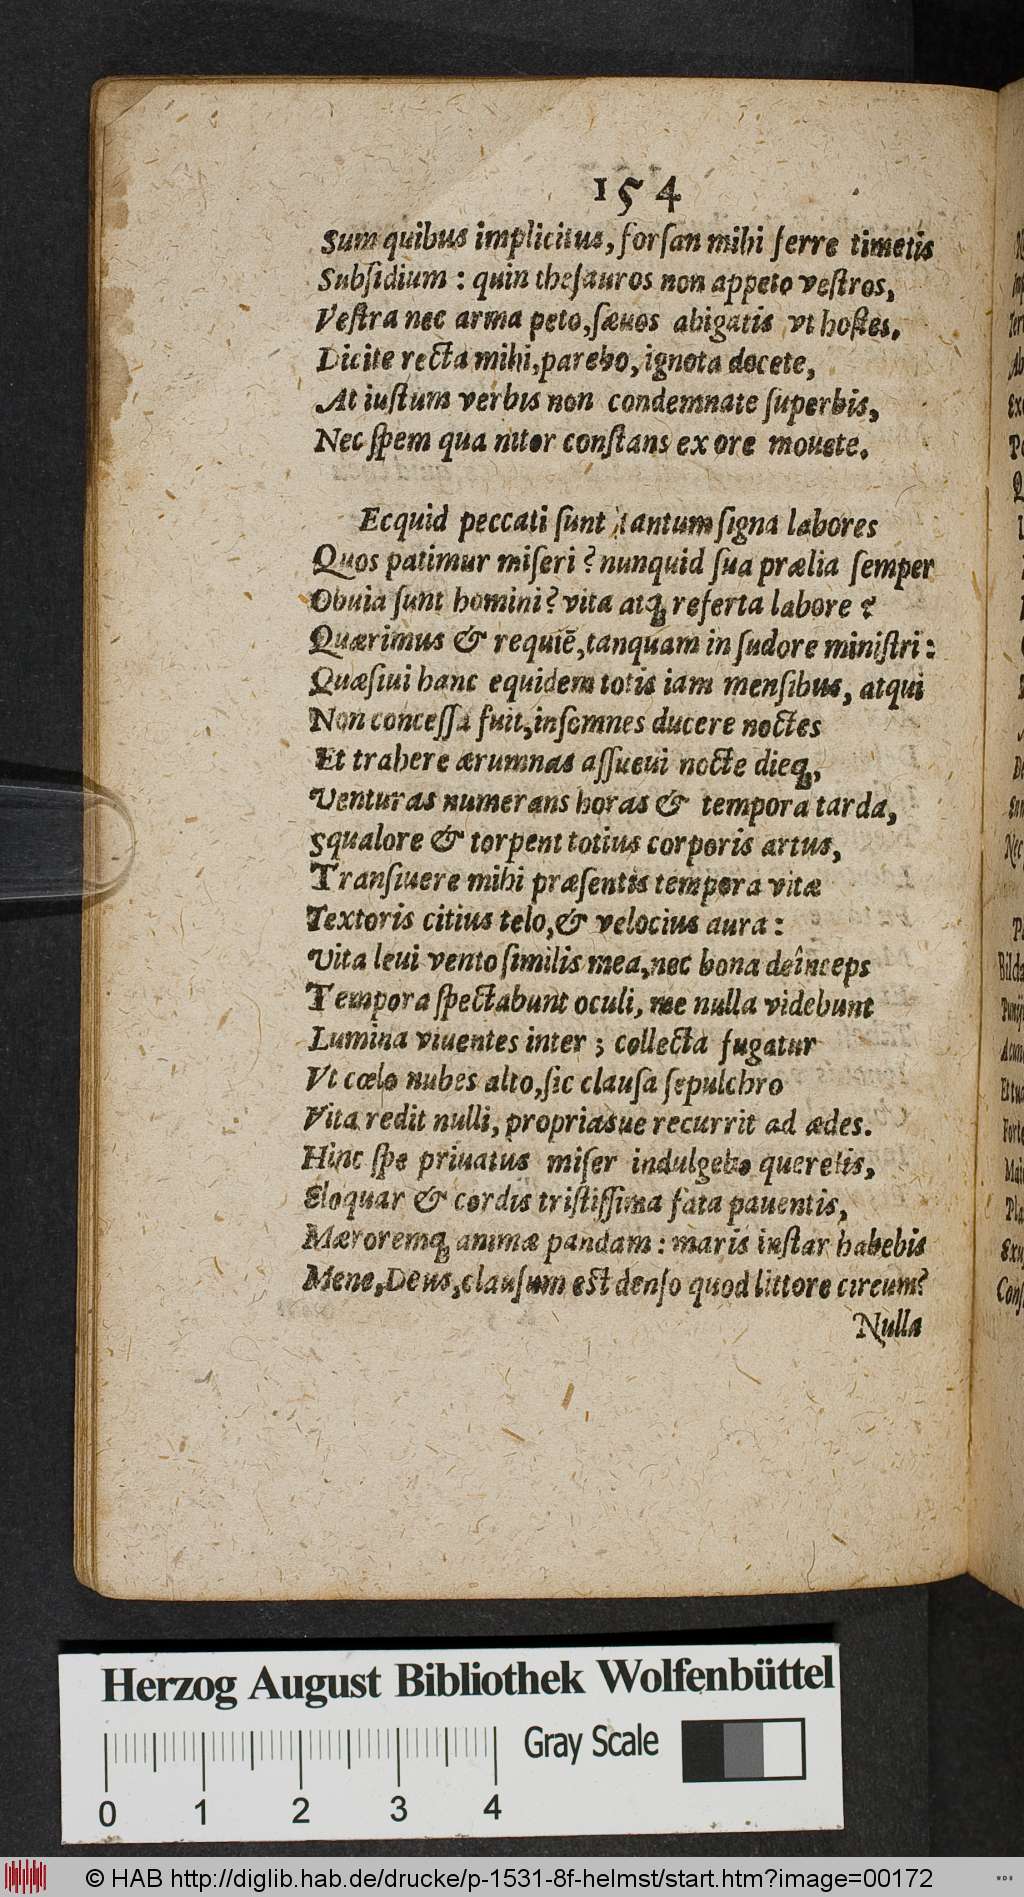 154
Sum quibus implicitus, forſan mihi ferre timetis
Subſidium : quin theſauros non appeto veſtros,
Veſtra nec arma peto, ſæuos abigatis vt hoſtes.
Dicite recta mihi, parebo, ignota docete,
At iuſtum verbis non condemnate ſuperbis,
Nec ſpem qua nitor conſtans ex ore mouete.
Ecquid peccati ſunt tantum ſigna labores
Quos patimur miſeri ? nunquid ſua prælia ſemper
Obuia ſunt homini? vita atq; referta labore ?
Quærimus & requiē, tanquam in ſudore miniſtri :
Quæſiui hanc equidem totis iam menſibus, atqui
Non conceſſa fuit, inſomnes ducere noctes
Et trahere ærumnas aſſueui nocte dieq;,
Venturas numerans horas & tempora tarda,
Squalore & torpent totius corporis artus,
Tranſiuere mihi præſentis tempora vitæ
Textoris citius telo, & velocius aura :
Vita leui vento ſimilis mea, nec bona deînceps
Tempora ſpectabunt oculi, me nulla videbunt
Lumina viuentes inter ; collecta fugatur
Vt cœlo nubes alto, ſic clauſa ſepulchro
Vita redit nulli, propriasue recurrit ad ædes.
Hinc ſpe priuatus miſer indulgebo querelis,
Eloquar & cordis triſtiſſima fata pauentis,
Mæroremq; animæ pandam : maris inſtar habebis
Mene, Deus, clauſum eſt denſo quod littore circum?
Nulla
Herzog August Bibliothek Wolfenbüttel
Gray Scale
0 1 2 3 4
© HAB http://diglib.hab.de/drucke/p-1531-8f-helmst/start.htm?image=00172